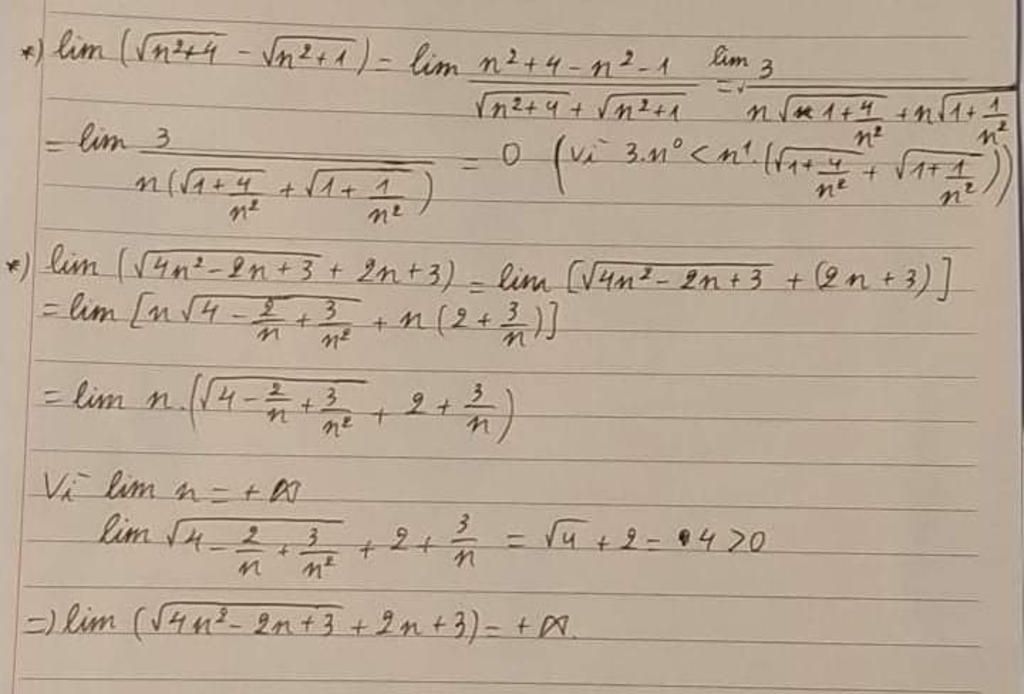 *) lim (√(n²+4) - √(n²+1)) = lim (n²+4-n²-1)/(√(n²+4) + √(n²+1)) = lim 3/(n√(1+4/n²) + n√(1+1/n²))
= lim 3/(n(√(1+4/n²) + √(1+1/n²))) = 0 (Vì 3.n⁰ < n¹.(√(1+4/n²) + √(1+1/n²)))
*) lim (√(4n²-2n+3) + 2n+3) = lim [√(4n²-2n+3) + (2n+3)]
= lim [n√(4-2/n+3/n²) + n(2+3/n)]
= lim n.(√(4-2/n+3/n²) + 2+3/n)
Vì lim n = +∞
lim √(4-2/n+3/n²) + 2+3/n = √4 + 2 = 4 > 0
=) lim (√(4n²-2n+3) + 2n+3) = +∞.